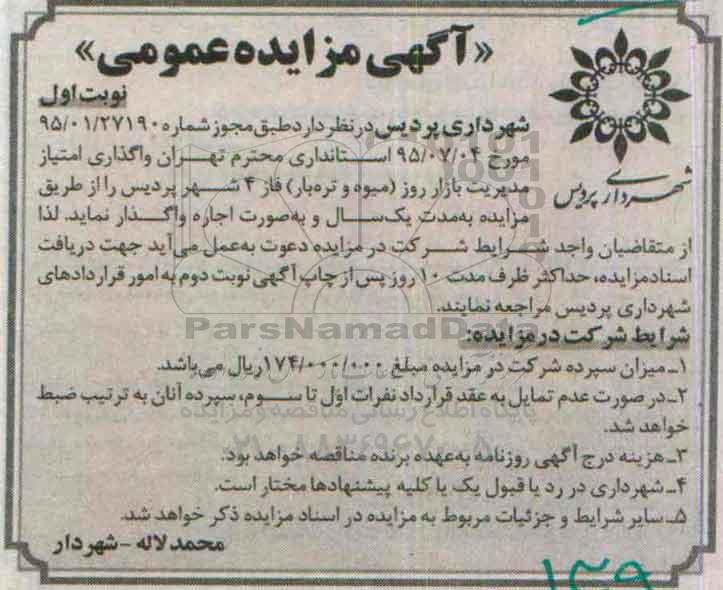 «آگهی مزایده عمومی»
نوبت اول
شهرداری پردیس در نظر دارد طبق مجوز شماره ۹۵/۰۱/۲۷۱۹۰
مورخ ۹۵/۰۷/۰۴ استانداری محترم تهران واگذاری امتیاز
مدیریت بازار روز (میوه و تره‌بار) فاز ۴ شهر پردیس را از طریق
مزایده به‌مدت یک‌سال و به‌صورت اجاره واگذار نماید. لذا
شهرداری پردیس
از متقاضیان واجد شرایط شرکت در مزایده دعوت به‌عمل می‌آید جهت دریافت
اسناد مزایده، حداکثر ظرف مدت ۱۰ روز پس از چاپ آگهی نوبت دوم به امور قراردادهای
شهرداری پردیس مراجعه نمایند.
ParsNamadData
شرایط شرکت در مزایده:
۱ـ میزان سپرده شرکت در مزایده مبلغ ۱۷۴/۰۰۰/۰۰۰ ریال می‌باشد.
۲ـ در صورت عدم تمایل به عقد قرارداد نفرات اوّل تا سوم، سپرده آنان به ترتیب ضبط
پایگاه اطلاع رسانی مناقصه و مزایده
خواهد شد.
۰۲۱-۸۸۳۴۹۶۷۰
۳ـ هزینه درج آگهی روزنامه به‌عهده برنده مناقصه خواهد بود.
۴ـ شهرداری در رد یا قبول یک یا کلیه پیشنهادها مختار است.
۵ـ سایر شرایط و جزئیات مربوط به مزایده در اسناد مزایده ذکر خواهد شد.
محمد لاله - شهردار
۱۳۹